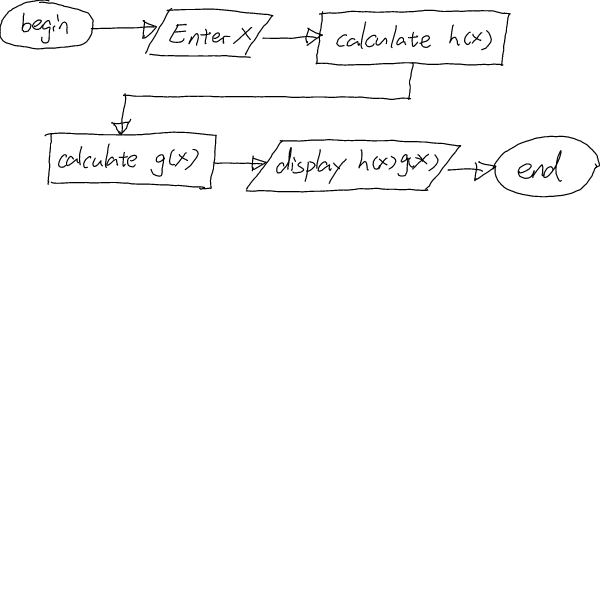 begin
Enter X
calculate h(x)
calculate g(x)
display h(x)g(x)
end